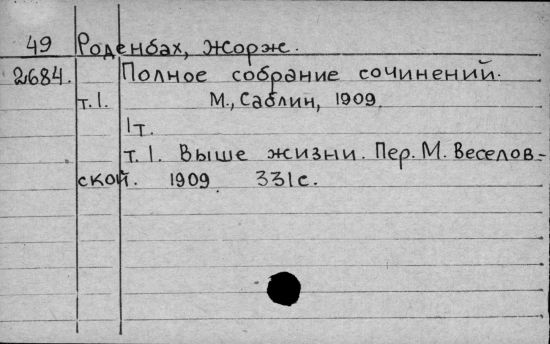 49 Роденбах, Жорж.
2684. Полное собрание сочинений.
т.1. М., Саблин, 1909
1т.
т.1. Выше жизни. Пер. М. Веселов-
ской. 1909 331с.